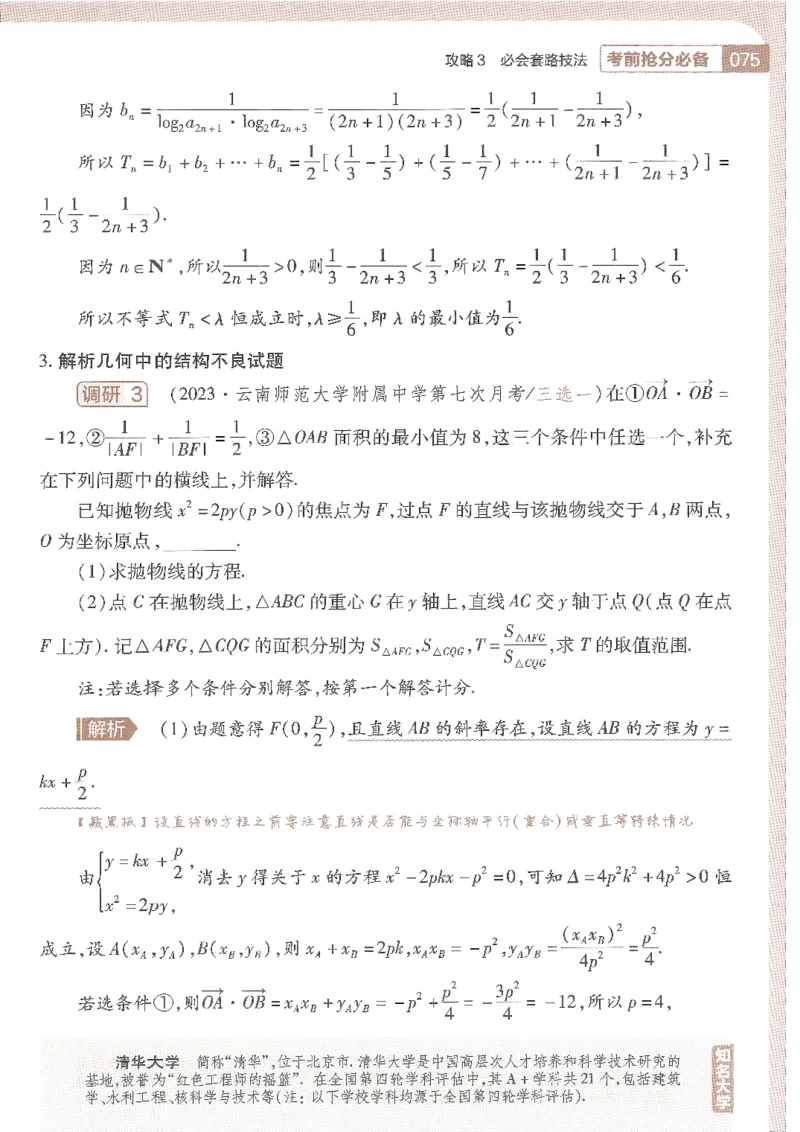 攻略3 必会套路技法 考前抢分必备 075
因为 bₙ = 1/(log₂a₂ₙ₊₁ · log₂a₂ₙ₊₃) = 1/((2n+1)(2n+3)) = 1/2(1/(2n+1) - 1/(2n+3)),
所以 Tₙ = b₁ + b₂ + … + bₙ = 1/2[(1/3 - 1/5) + (1/5 - 1/7) + … + (1/(2n+1) - 1/(2n+3))] =
1/2(1/3 - 1/(2n+3)).
因为 n∈N*,所以 1/(2n+3) >0,则 1/3 - 1/(2n+3) < 1/3,所以 Tₙ = 1/2(1/3 - 1/(2n+3)) < 1/6.
所以不等式 Tₙ < λ 恒成立时,λ ≥ 1/6,即 λ 的最小值为 1/6.
3. 解析几何中的结构不良试题
调研 3 (2023·云南师范大学附属中学第七次月考/三选一)在①OA→ · OB→ =
-12,②1/|AF| + 1/|BF| = 1/2,③△OAB 面积的最小值为 8,这三个条件中任选一个,补充
在下列问题中的横线上,并解答.
已知抛物线 x² = 2py(p > 0)的焦点为 F,过点 F 的直线与该抛物线交于 A,B 两点,
O 为坐标原点,______.
(1)求抛物线的方程.
(2)点 C 在抛物线上,△ABC 的重心 G 在 y 轴上,直线 AC 交 y 轴于点 Q(点 Q 在点
F 上方). 记△AFG,△CQG 的面积分别为 S△AFG,S△CQG,T = S△AFG/S△CQG,求 T 的取值范围.
注:若选择多个条件分别解答,按第一个解答计分.
解析 (1)由题意得 F(0, p/2),且直线 AB 的斜率存在,设直线 AB 的方程为 y =
kx + p/2.
【敲黑板】设直线的方程之前要注意直线是否能与坐标轴平行(重合)或垂直等特殊情况
由{y = kx + p/2, x² = 2py, 消去 y 得关于 x 的方程 x² - 2pkx - p² = 0,可知 Δ = 4p²k² + 4p² > 0 恒
成立,设 A(x_A,y_A),B(x_B,y_B),则 x_A + x_B = 2pk,x_Ax_B = -p²,y_Ay_B = (x_Ax_B)²/4p² = p²/4.
若选条件①,则 OA→ · OB→ = x_Ax_B + y_Ay_B = -p² + p²/4 = -3p²/4 = -12,所以 p = 4,
清华大学 简称“清华”,位于北京市. 清华大学是中国高层次人才培养和科学技术研究的
基地,被誉为“红色工程师的摇篮”. 在全国第四轮学科评估中,其 A+学科共 21 个,包括建筑
学、水利工程、核科学与技术等(注: 以下学校学科均源于全国第四轮学科评估).
知名大学